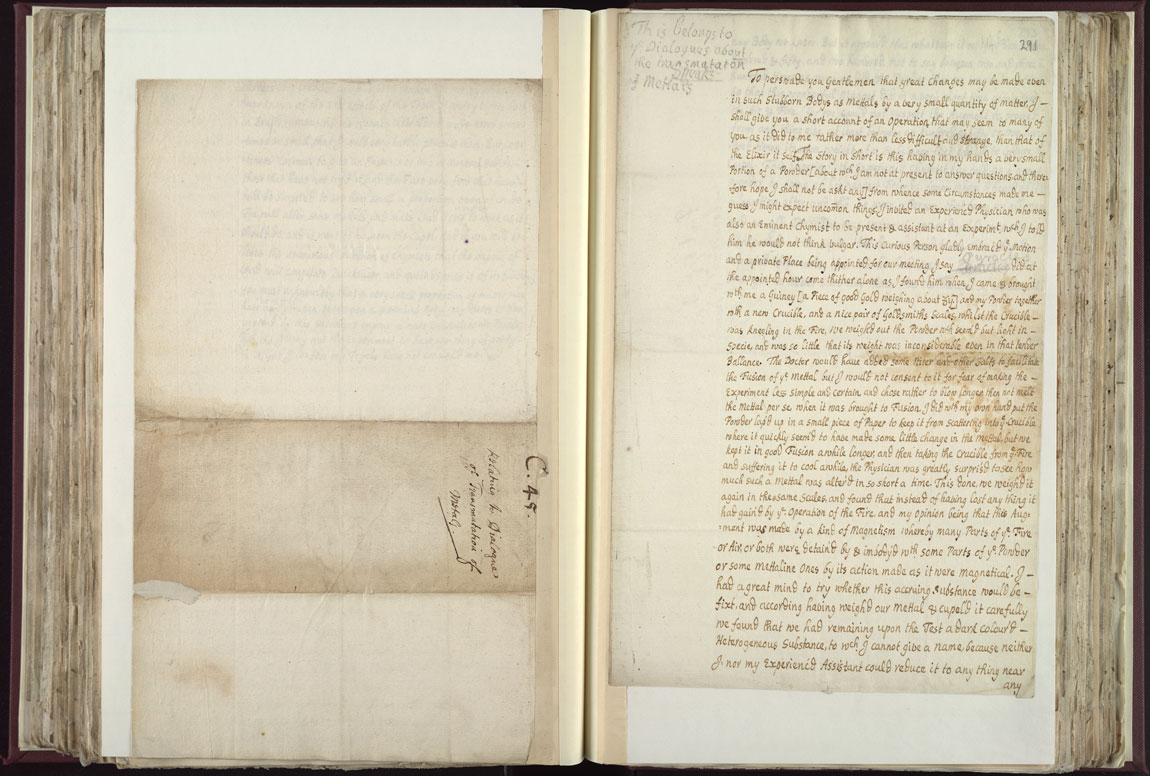 C. 45.
Relatives to Dialogues
of Transmutation of
Metals
291
This belongs to
ye Dialogues about
the transmutation
of Mettals
To perswade you Gentlemen that great Changes may be made even
in such Stubborn Bodys as Mettals by a very small quantity of matter, I –
shall give you a short account of an Operation that may seem to many of
you as it did to me rather more than less difficult and strange, than that of
the Elixir it self. The Story in short is this having in my hands a very small
Portion of a Powder [about wch I am not at present to answer questions and there
fore hope I shall not be askt any] from whence some Circumstances made me –
guess I might expect uncom̄on things, I invited an Experiencd Physician who was
also an Eminent Chymist to be present & assistant at an Experimt. wch I told
him he would not think vulgar. This Curious Person gladly embrac'd ye. Motion
and a private Place being appointed for our meeting, I say did at
the appointed hour come thither alone as I found him when I came & brought
wth me a Guiney [a Piece of good Gold weighing about] and my Powder together
wth a new Crucible, and a nice pair of Goldsmiths Scales, whilst the Crucible –
was Knealing in the Fire, we weighd out the Powder wch seem'd but light in –
Specie, and was so little that its weight was inconsiderable even in that tender
Ballance. The Doctor would have added some Niter and other Salts to facilitate
the Fusion of ye. Mettal but I would not consent to it for fear of making the –
Experiment less simple and certain, and chose rather to blow longer then not melt
the Mettal per se, when it was brought to Fusion, I did wth my own hand put the
Powder lap'd up in a small piece of Paper to keep it from scattering into ye. Crucible
where it quickly seem'd to have made some little change in the mettal, but we
kept it in good Fusion a while longer and then taking the Crucible from ye. Fire
and suffering it to cool a while, the Physician was greatly surpris'd to see how
much such a Mettal was alter'd in so short a time. This done, we weigh'd it
again in the same Scales and found that instead of having lost any thing it
had gaind by ye. Operation of the Fire, and my Opinion being that this Aug-
ment was made by a kind of Magnetism whereby many Parts of ye. Fire
or Air, or both were detain'd by & imbody'd wth some Parts of ye. Powder
or some Mettaline Ones by its action made as it were magnetical. I –
had a great mind to try whether this accruing Substance would be –
fixt, and according having weigh'd our Mettal & cupell'd it carefully
we found that we had remaining upon the Test a dark colour'd –
Heterogeneous Substance, to wch I cannot give a name, because neither
I, nor my Experienc'd Assistant could reduce it to any thing near
any